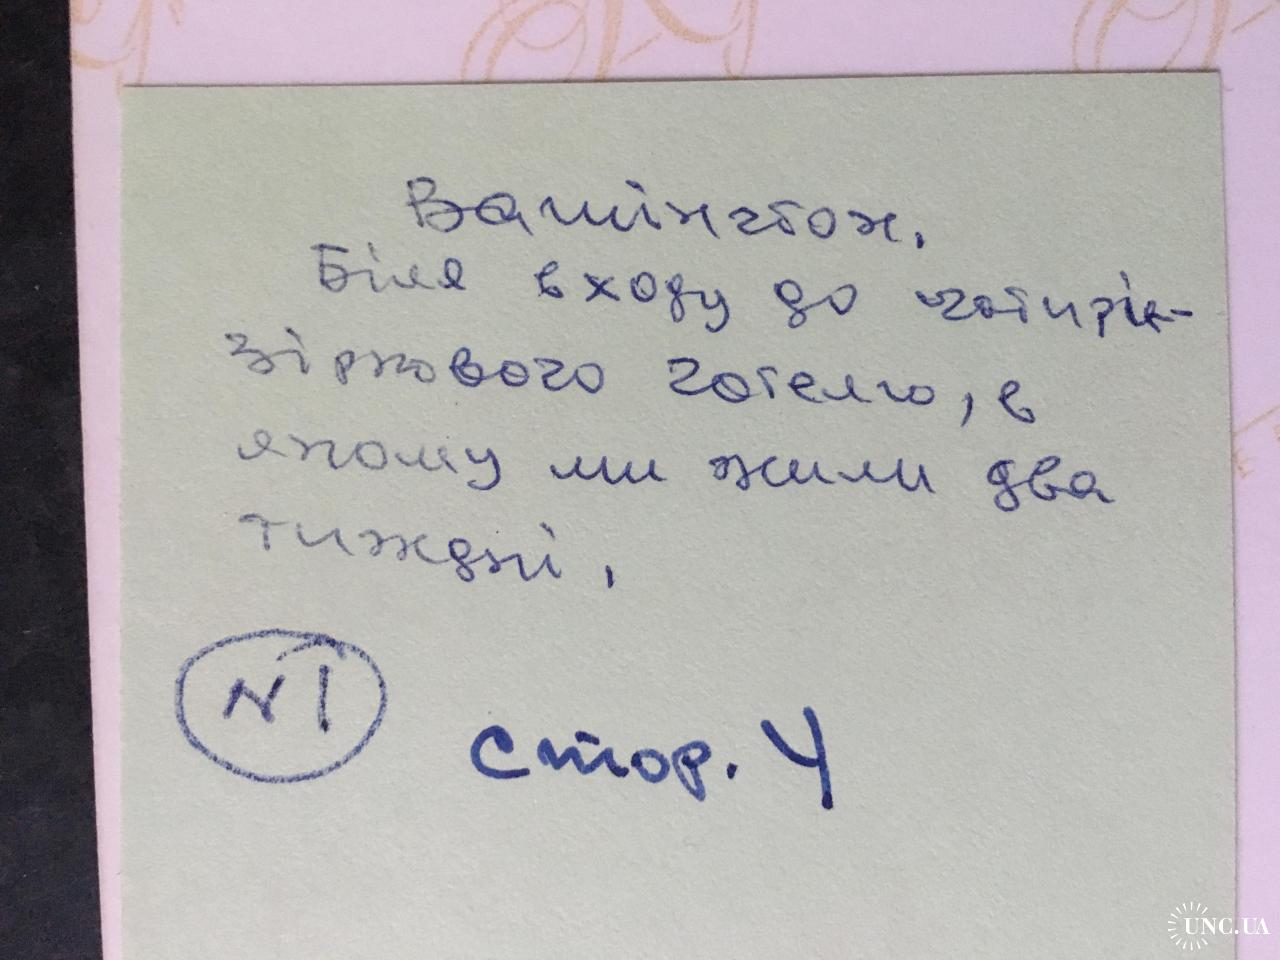 Вашінгтон.
Біля входу до чотирік-
зіркового готелю, в
якому ми жили два
тиждні.
N 1
Стор. 4
UNC.UA